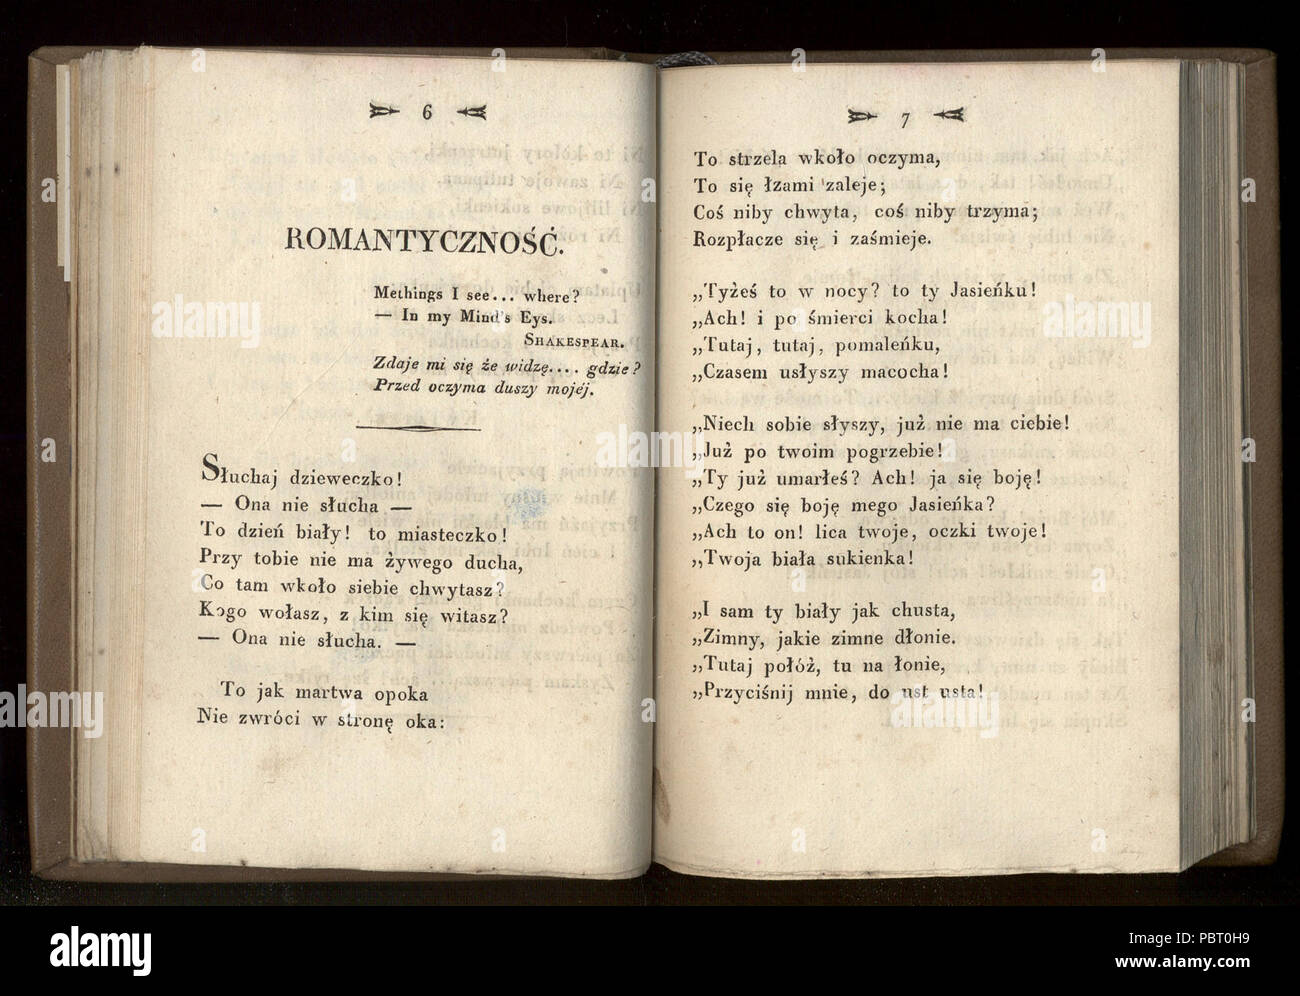 6
ROMANTYCZNOŚĆ.
Methings I see... where?
— In my Mind's Eys.
SHAKESPEAR.
Zdaje mi się że widzę.... gdzie?
Przed oczyma duszy mojéj.
Słuchaj dzieweczko!
— Ona nie słucha —
To dzień biały! to miasteczko!
Przy tobie nie ma żywego ducha,
Co tam wkoło siebie chwytasz?
Kogo wołasz, z kim się witasz?
— Ona nie słucha. —
To jak martwa opoka
Nie zwróci w stronę oka:
7
To strzela wkoło oczyma,
To się łzami zaleje;
Coś niby chwyta, coś niby trzyma;
Rozpłacze się i zaśmieje.
„Tyżeś to w nocy? to ty Jasieńku!
„Ach! i po śmierci kocha!
„Tutaj, tutaj, pomaleńku,
„Czasem usłyszy macocha!
„Niech sobie słyszy, już nie ma ciebie!
„Już po twoim pogrzebie!
„Ty już umarłeś? Ach! ja się boję!
„Czego się boję mego Jasieńka?
„Ach to on! lica twoje, oczki twoje!
„Twoja biała sukienka!
„I sam ty biały jak chusta,
„Zimny, jakie zimne dłonie.
„Tutaj połóż, tu na łonie,
„Przyciśnij mnie, do ust usta!
alamy
Image ID: PBT0H9
www.alamy.com